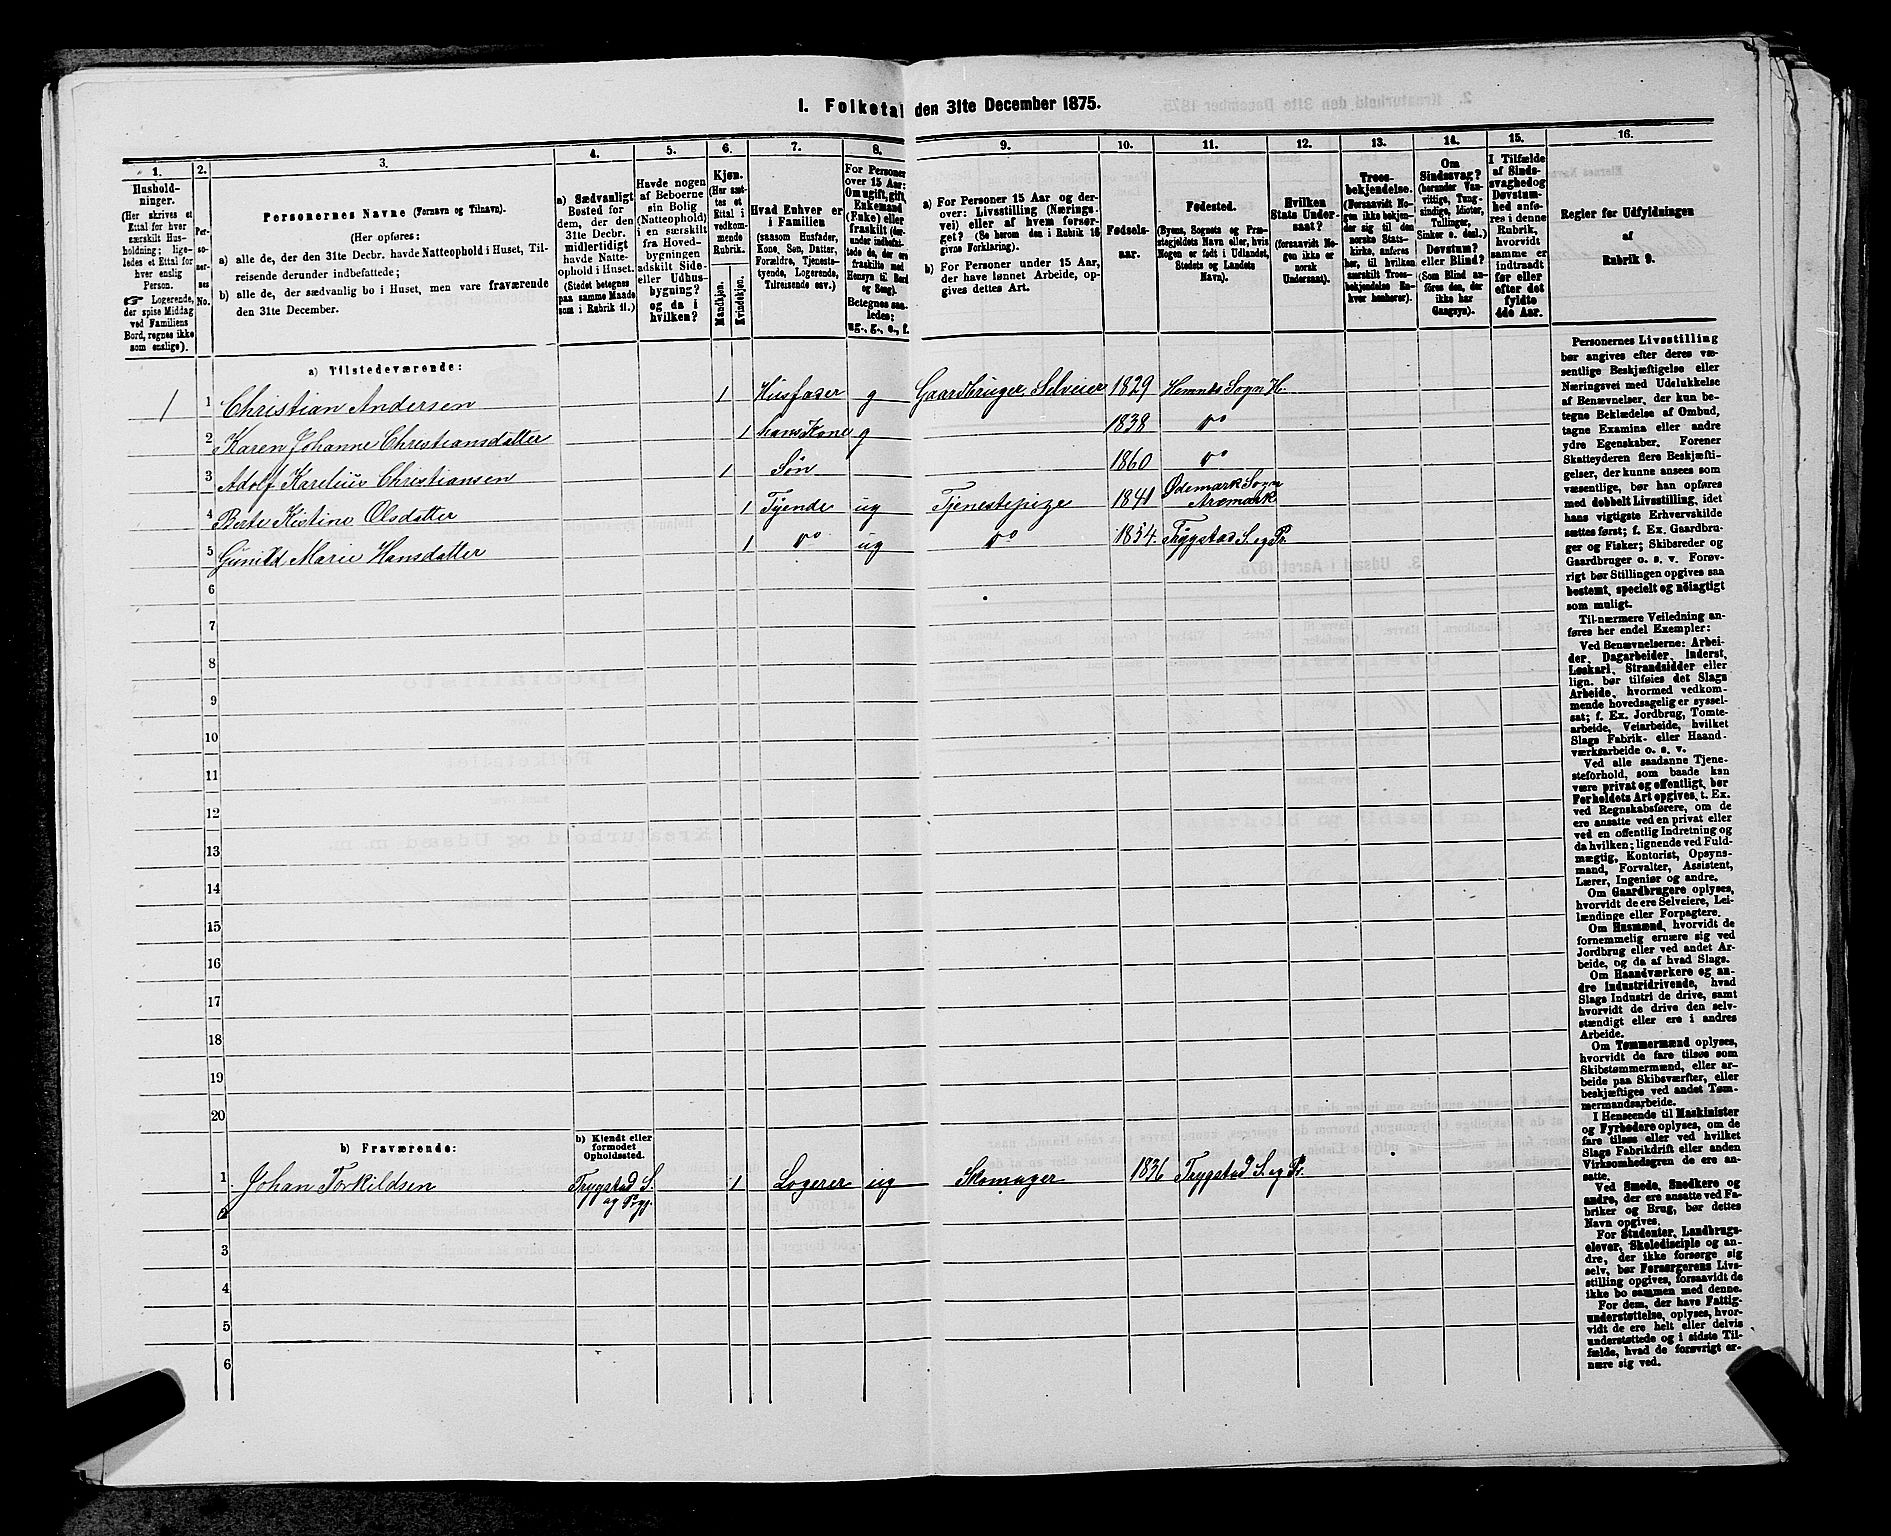 I. Folketal den 31te December 1875.
1. 2. 3. 4. 5. 6. 7. 8. 9. 10. 11. 12. 13. 14. 15. 16.
Hushold-
ninger.
(Her skrives et
Ettal for hver
særskilt Hus-
holdning; lige-
ledes et Ettal for
hver enslig
Person.
☞ Logerende,
der spise Middag
ved Familiens
Bord, regnes ikke
som enslige).
Per-
so-
ner-
nes
No.
Personernes Navne (Fornavn og Tilnavn).
(Her opføres:
a) alle de, der den 31te Decbr. havde Natteophold i Huset, Til-
reisende derunder indbefattede;
b) alle de, der sædvanlig bo i Huset, men vare fraværende
den 31te December.
a) Sædvanligt
Bosted for
dem, der den
31te Decbr.
midlertidigt
havde Natte-
ophold i Huset.
(Stedet betegnes
paa samme Maade
som i Rubrik 11.)
Havde nogen
af Beboerne
sin Bolig
(Natteophold)
i en særskilt
fra Hoved-
bygningen
adskilt Side-
eller Udhus-
bygning?
og da i
hvilken?
Kjøn.
(Her sæt-
tes et
Ettal i
vedkom-
mende
Rubrik.
Mandkjøn.
Kvindekjøn.
Hvad Enhver er
i Familien
(saasom Husfader,
Kone, Søn, Datter,
Forældre, Tjeneste-
tyende, Logerende,
Tilreisende osv.)
For Personer
over 15 Aar:
Om ugift, gift,
Enkemand
(Enke) eller
fraskilt (der-
under indbefat-
tede de, der ere
fraskilte med
Hensyn til Bord
og Seng).
Betegnes saa-
ledes:
ug., g., e., f.
a) For Personer 15 Aar og der-
over: Livsstilling (Nærings-
vei) eller af hvem forsør-
get? (Se herom den i Rubrik 16
givne Forklaring).
b) For Personer under 15 Aar,
der have lønnet Arbeide, op-
gives dettes Art.
Fødsels-
aar.
Fødested.
(Byens, Sognets og Præ-
stegjeldets Navn eller, hvis
Nogen er født i Udlandet,
Stedets og Landets
Navn).
Hvilken
Stats Under-
saat?
(forsaavidt No-
gen ikke er
norsk
Undersaat).
Troes-
bekjendelse.
(Forsaavidt No-
gen ikke bekjen-
der sig til den
norske Stats-
kirke, anføres
her, til hvilken
særskilt Troes-
bekjendelse En-
hver henhører).
Om
Sindssvag?
(herunder Van-
vittige, Tung-
sindige, Idioter,
Tullinger,
Sinker o. desl.)
Døvstum?
eller Blind?
(Som Blind an-
føres den, der
ikke har
Gangsyn).
I Tilfælde
af Sinds-
svaghed og
Døvstum-
hed anfø-
res i denne
Rubrik,
hvorvidt
samme er
indtraadt
før eller
efter det
fyldte
4de Aar.
Regler for Udfyldningen
af
Rubrik 9.
a) Tilstedeværende:
1 1 Christian Andersen 1 Husfader g Gaardbruger, Selveier 1829 Hemnes Sogn H.
2 Karen Johanne Christiansdatter 1 hans Kone g 1838 do
3 Adolf Karelius Christiansen 1 Søn 1860 do
4 Berte Kistine Olsdatter 1 Tyende ug Tjenestepige 1841 Ødemark Sogn
Aremark
5 Gunild Marie Hansdatter 1 do ug do 1854. Trygstad S. og Pr.
6
7
8
9
10
11
12
13
14
15
16
17
18
19
20
b) Fraværende:
b) Kjendt eller
formodet
Opholdssted.
1 Johan Torkildsen Trygstad S. 1 Logerer ug Skomager 1836 Trygstad S. og Pr.
og Prgj.
2
3
4
5
6
Personernes Livsstilling
bør angives efter deres væ-
sentlige Beskjæftigelse eller
Næringsvei med Udelukkelse
af Benævnelser, der kun be-
tegne Beklædelse af Ombud,
tagne Examina eller andre
ydre Egenskaber. Forener
Skatteyderen flere Beskjæfti-
gelser, der kunne ansees som
væsentlige, bør han opføres
med dobbelt Livsstilling, idet
hans vigtigste Erhvervskilde
sættes først; f. Ex. Gaardbru-
ger og Fisker; Skibsreder og
Gaardbruger o. s. v. Forøv-
rigt bør Stillingen opgives saa
bestemt, specielt og nøiagtigt
som muligt.
Til nærmere Veiledning an-
føres her endel Exempler:
Ved Benævnelserne: Arbei-
der, Dagarbeider, Inderst,
Løskarl, Strandsidder eller
lign. bør tilføies det Slags
Arbeide, hvormed vedkom-
mende hovedsagelig er syssel-
sat; f. Ex. Jordbrug, Tomte-
arbeide, Veiarbeide, hvilket
Slags Fabrik- eller Haand-
værksarbeide o. s. v.
Ved alle saadanne Tjene-
steforhold, som baade kan
være privat og offentligt, bør
Forholdets Art opgives, t. Ex.
ved Regnskabsførere, om de
ere ansatte ved en privat eller
ved en offentlig Indretning og
da hvilken; lignende ved Fuld-
mægtig, Kontorist, Opsyns-
mand, Forvalter, Assistent,
Lærer, Ingeniør og andre.
Om Gaardbrugere oplyses,
hvorvidt de ere Selveiere, Lei-
lændinge eller Forpagtere.
Om Husmænd, hvorvidt de
fornemmelig ernære sig ved
Jordbrug eller ved andet Ar-
beide, og da af hvad Slags.
Om Haandværkere og an-
dre Industridrivende, hvad
Slags Industri de drive, samt
hvorvidt de drive den selv-
stændigt eller ere i andres
Arbeide.
Om Tømmermænd oplyses,
hvorvidt de fare tilsøs som
Skibstømmermænd, eller ar-
beide paa Skibsværfter, eller
beskjæftiges ved andet Tøm-
mermandsarbeide.
I Henseende til Maskinister
og Fyrbødere oplyses, om de
fare tilsøs eller ved hvilket
Slags Fabrikdrift eller anden
Virksomhedsgren de ere an-
satte.
Ved Smede, Snedkere og
andre, der ere ansatte ved Fa-
briker og Brug, bør dettes
Navn opgives.
For Studenter, Landbrugs-
elever, Skoledisciple og an-
dre, der ikke forsørge sig
selv, bør Forsørgerens Livs-
stilling opgives, forsaavidt de
ikke bo sammen med denne.
For dem, der have Fattig-
understøttelse, oplyses, hvor-
vidt de ere helt eller delvis
understøttede og i sidste Til-
fælde, hvad de forøvrigt er-
nære sig ved.